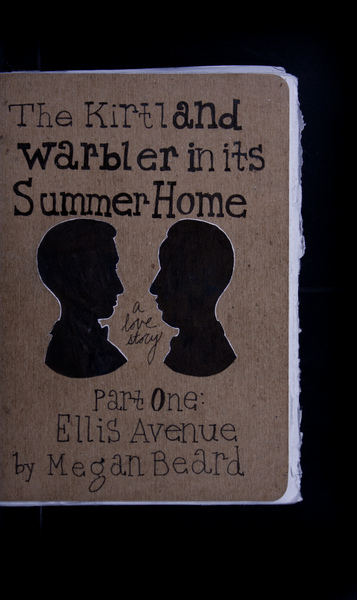 The Kirtland
Warbler in its
Summer Home
a
love
story
Part One:
Ellis Avenue
by Megan Beard